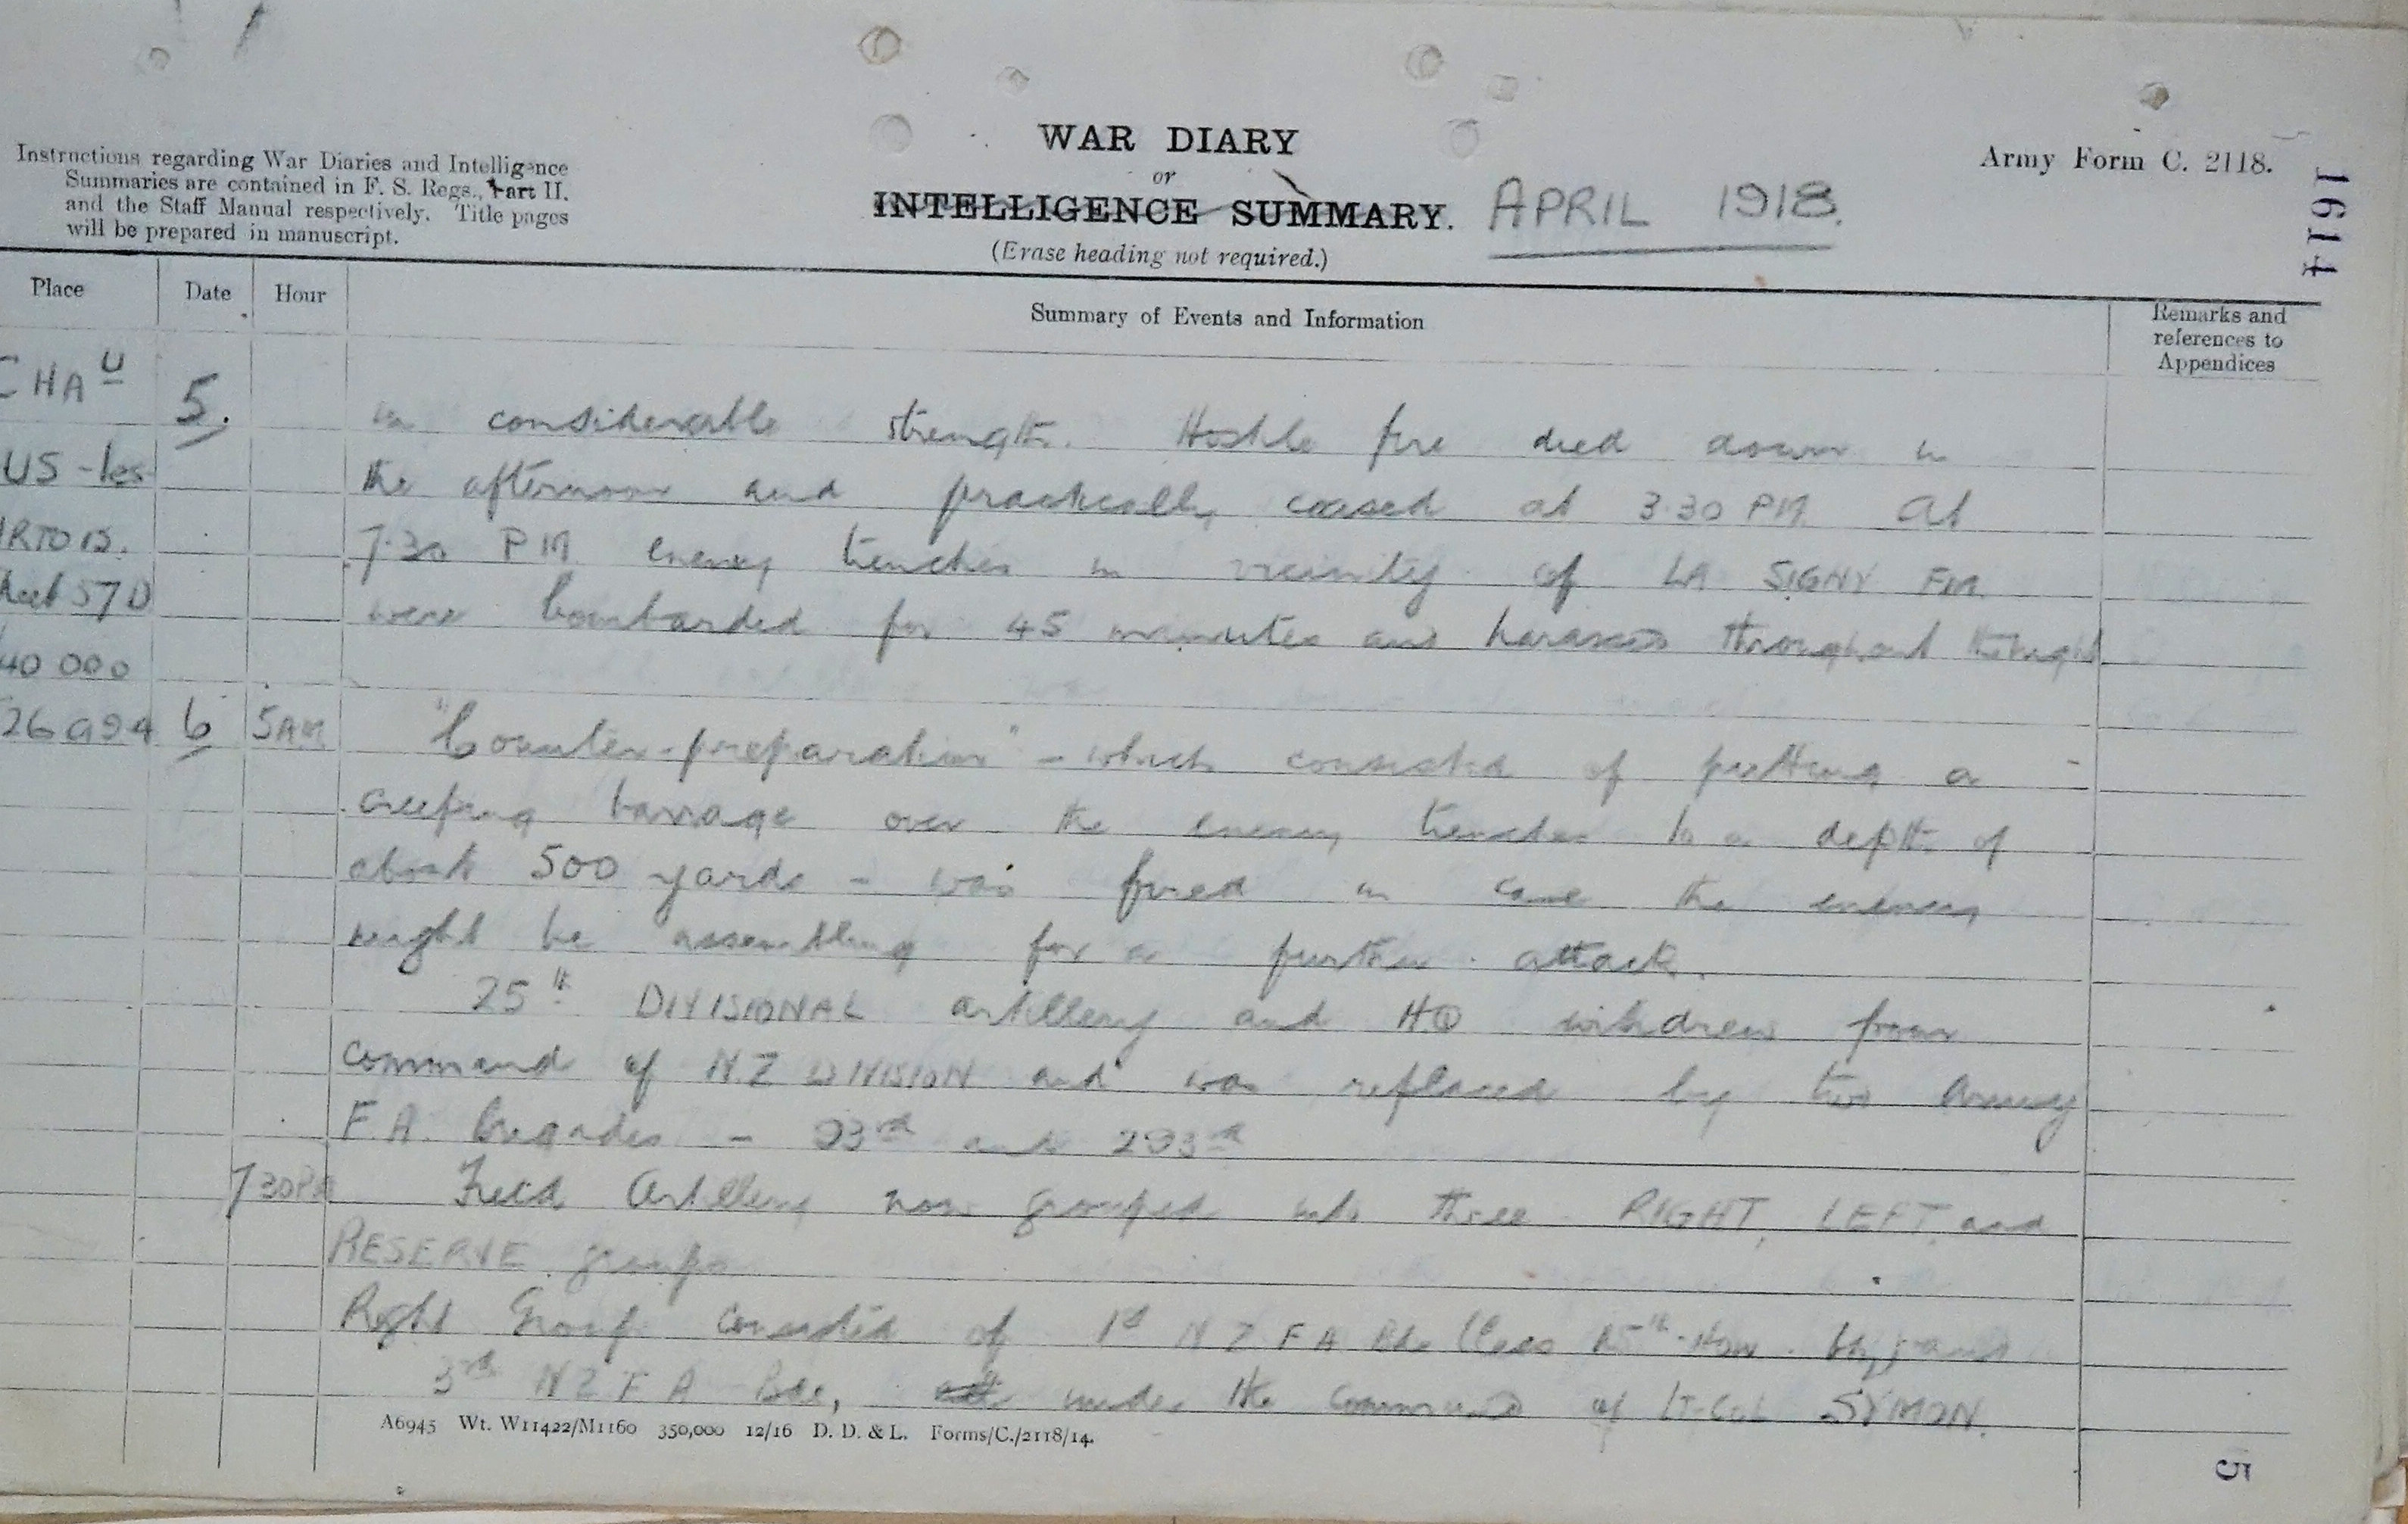 Instructions regarding War Diaries and Intelligence
Summaries are contained in F. S. Regs., Part II.
and the Staff Manual respectively. Title pages
will be prepared in manuscript.
WAR DIARY
or
INTELLIGENCE SUMMARY.
(Erase heading not required.)
APRIL 1918.
Army Form C. 2118.
1614
Place
Date
Hour
Summary of Events and Information
Remarks and
references to
Appendices
CHAU
US-les-
ARTOIS.
Sheet 57D
40 000
26 a 9 4
5.
in considerable strength. Hostile fire died down in
the afternoon and practically ceased at 3.30 PM. At
7.30 PM. enemy trenches in vicinity of LA SIGNY FM.
were bombarded for 45 minutes and harassed throughout the night
6 5AM
"Counter-preparation" - which consisted of putting a -
creeping barrage over the enemy trenches to a depth of
about 500 yards - was fired in case the enemy
might be assembling for a further attack.
25th DIVISIONAL artillery and HQ withdrew from
command of N.Z DIVISION and was replaced by two Army
F.A. Brigades - 93rd and 293rd
7 30PM Field Artillery now grouped into three RIGHT, LEFT, and
RESERVE groups
Right Group consisted of 1st N Z F A Bde (less 15th How. Bty) and
3rd N Z F A Bde, under the command of LT-COL SYMON.
A6945 Wt. W11422/M1160 350,000 12/16 D. D. & L. Forms/C./2118/14.
5